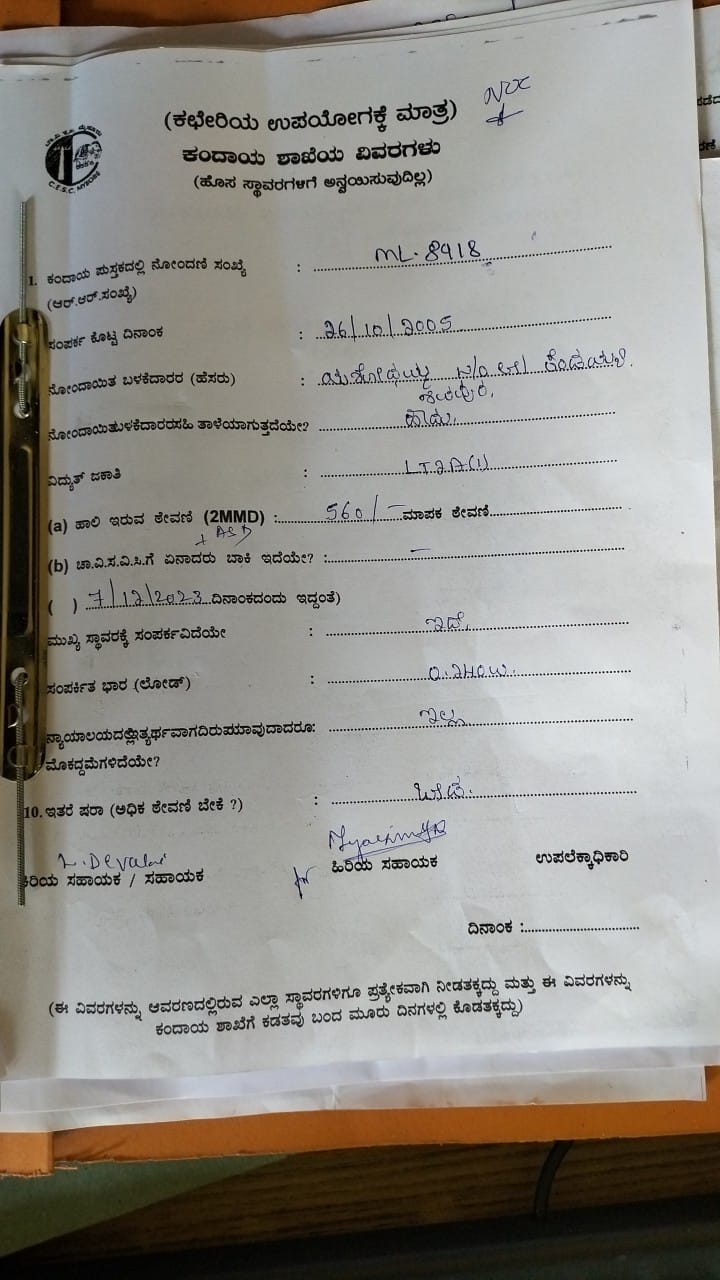 (ಕಛೇರಿಯ ಉಪಯೋಗಕ್ಕೆ ಮಾತ್ರ)
ಕಂದಾಯ ಶಾಖೆಯ ವಿವರಗಳು
(ಹೊಸ ಸ್ಥಾವರಗಳಿಗೆ ಅನ್ವಯಿಸುವುದಿಲ್ಲ)
C.E.S.C. MYSORE
1. ಕಂದಾಯ ಪುಸ್ತಕದಲ್ಲಿ ನೋಂದಣಿ ಸಂಖ್ಯೆ : ML-8918
(ಆರ್.ಆರ್.ಸಂಖ್ಯೆ)
ಸಂಪರ್ಕ ಕೊಟ್ಟ ದಿನಾಂಕ : 26/10/2005
ನೋಂದಾಯಿತ ಬಳಕೆದಾರರ (ಹೆಸರು) :
ನೋಂದಾಯಿತುಳಕೆದಾರರಸಹಿ ತಾಳೆಯಾಗುತ್ತದೆಯೇ? ಹೌದು.
ವಿದ್ಯುತ್ ಜಕಾತಿ : LT2A(1)
(a) ಹಾಲಿ ಇರುವ ಠೇವಣಿ (2MMD) : 560/- ಮಾಪಕ ಠೇವಣಿ
+ ASD
(b) ಚಾ.ವಿ.ಸ.ವಿ.ಸಿ.ಗೆ ಏನಾದರು ಬಾಕಿ ಇದೆಯೇ? : —
( ) 7/12/2023 ದಿನಾಂಕದಂದು ಇದ್ದಂತೆ)
ಮುಖ್ಯ ಸ್ಥಾವರಕ್ಕೆ ಸಂಪರ್ಕವಿದೆಯೇ : ಇದೆ.
ಸಂಪರ್ಕಿತ ಭಾರ (ಲೋಡ್) :
ನ್ಯಾಯಾಲಯದಲ್ಲಿತ್ಯರ್ಥವಾಗದಿರುಮಾವುದಾದರೂ: ಇಲ್ಲ
ಮೊಕದ್ದಮೆಗಳಿದೆಯೇ?
10. ಇತರೆ ಷರಾ (ಅಧಿಕ ಠೇವಣಿ ಬೇಕೆ ?) : ಬೇಡ.
ಕಿರಿಯ ಸಹಾಯಕ / ಸಹಾಯಕ
for ಹಿರಿಯ ಸಹಾಯಕ
ಉಪಲೆಕ್ಕಾಧಿಕಾರಿ
ದಿನಾಂಕ :
(ಈ ವಿವರಗಳನ್ನು ಆವರಣದಲ್ಲಿರುವ ಎಲ್ಲಾ ಸ್ಥಾವರಗಳಿಗೂ ಪ್ರತ್ಯೇಕವಾಗಿ ನೀಡತಕ್ಕದ್ದು ಮತ್ತು ಈ ವಿವರಗಳನ್ನು
ಕಂದಾಯ ಶಾಖೆಗೆ ಕಡತವು ಬಂದ ಮೂರು ದಿನಗಳಲ್ಲಿ ಕೊಡತಕ್ಕದ್ದು)